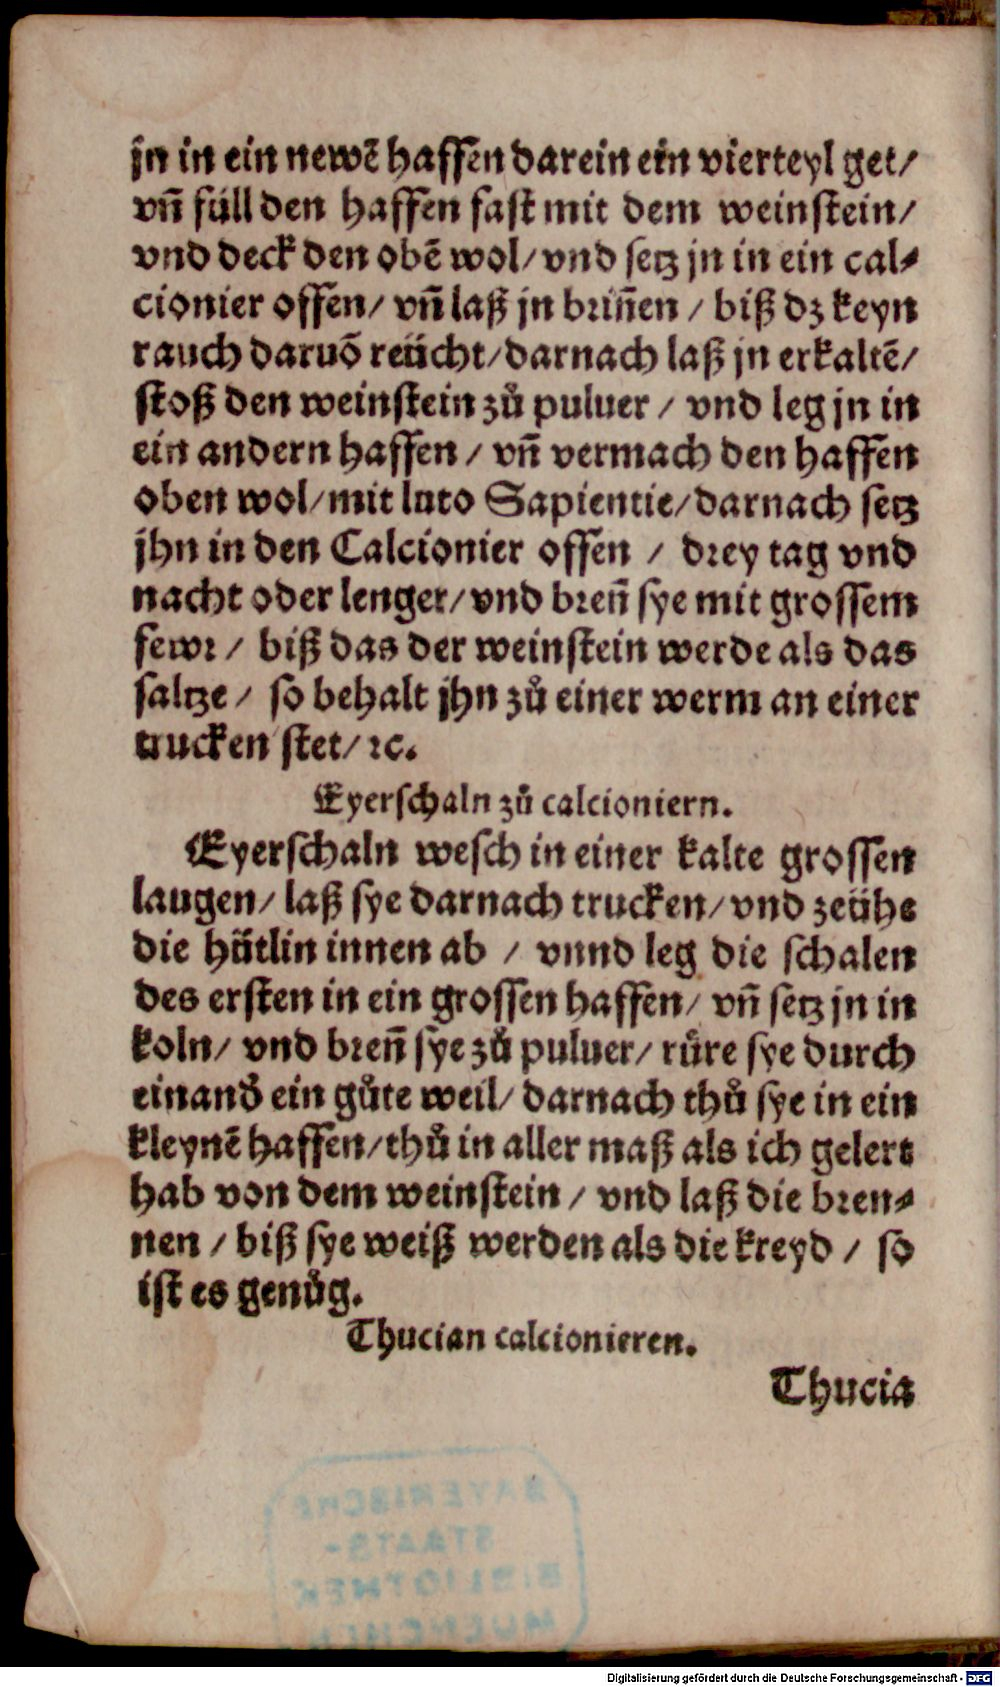 jn in ein newē haffen darein ein vierteyl get/
vñ füll den haffen fast mit dem weinstein/
vnd deck den obē wol/vnd setz jn in ein cal-
cionier offen/ vñ laß jn briñen / biß dz keyn
rauch daruō reücht/darnach laß jn erkaltē/
stoß den weinstein zů puluer / vnd leg jn in
ein andern haffen / vñ vermach den haffen
oben wol/mit luto Sapientie/darnach setz
jhn in den Calcionier offen / drey tag vnd
nacht oder lenger/vnd breñ sye mit grossem
fewr / biß das der weinstein werde als das
saltze / so behalt jhn zů einer werm an einer
trucken stet/ ꝛc.
Eyerschaln zů calcioniern.
Eyerschaln wesch in einer kalte grossen
laugen/ laß sye darnach trucken/vnd zeühe
die hütlin innen ab / vnnd leg die schalen
des ersten in ein grossen haffen/ vñ setz jn in
koln/ vnd breñ sye zů puluer/ růre sye durch
einanď ein gůte weil/ darnach thů sye in ein
kleynē haffen/thů in aller maß als ich gelert
hab von dem weinstein / vnd laß die bren-
nen / biß sye weiß werden als die kreyd / so
ist es genůg.
Thucian calcionieren.
Thucia
BAYERISCHE
STAATS-
BIBLIOTHEK
MUENCHEN
Digitalisierung gefördert durch die Deutsche Forschungsgemeinschaft - DFG